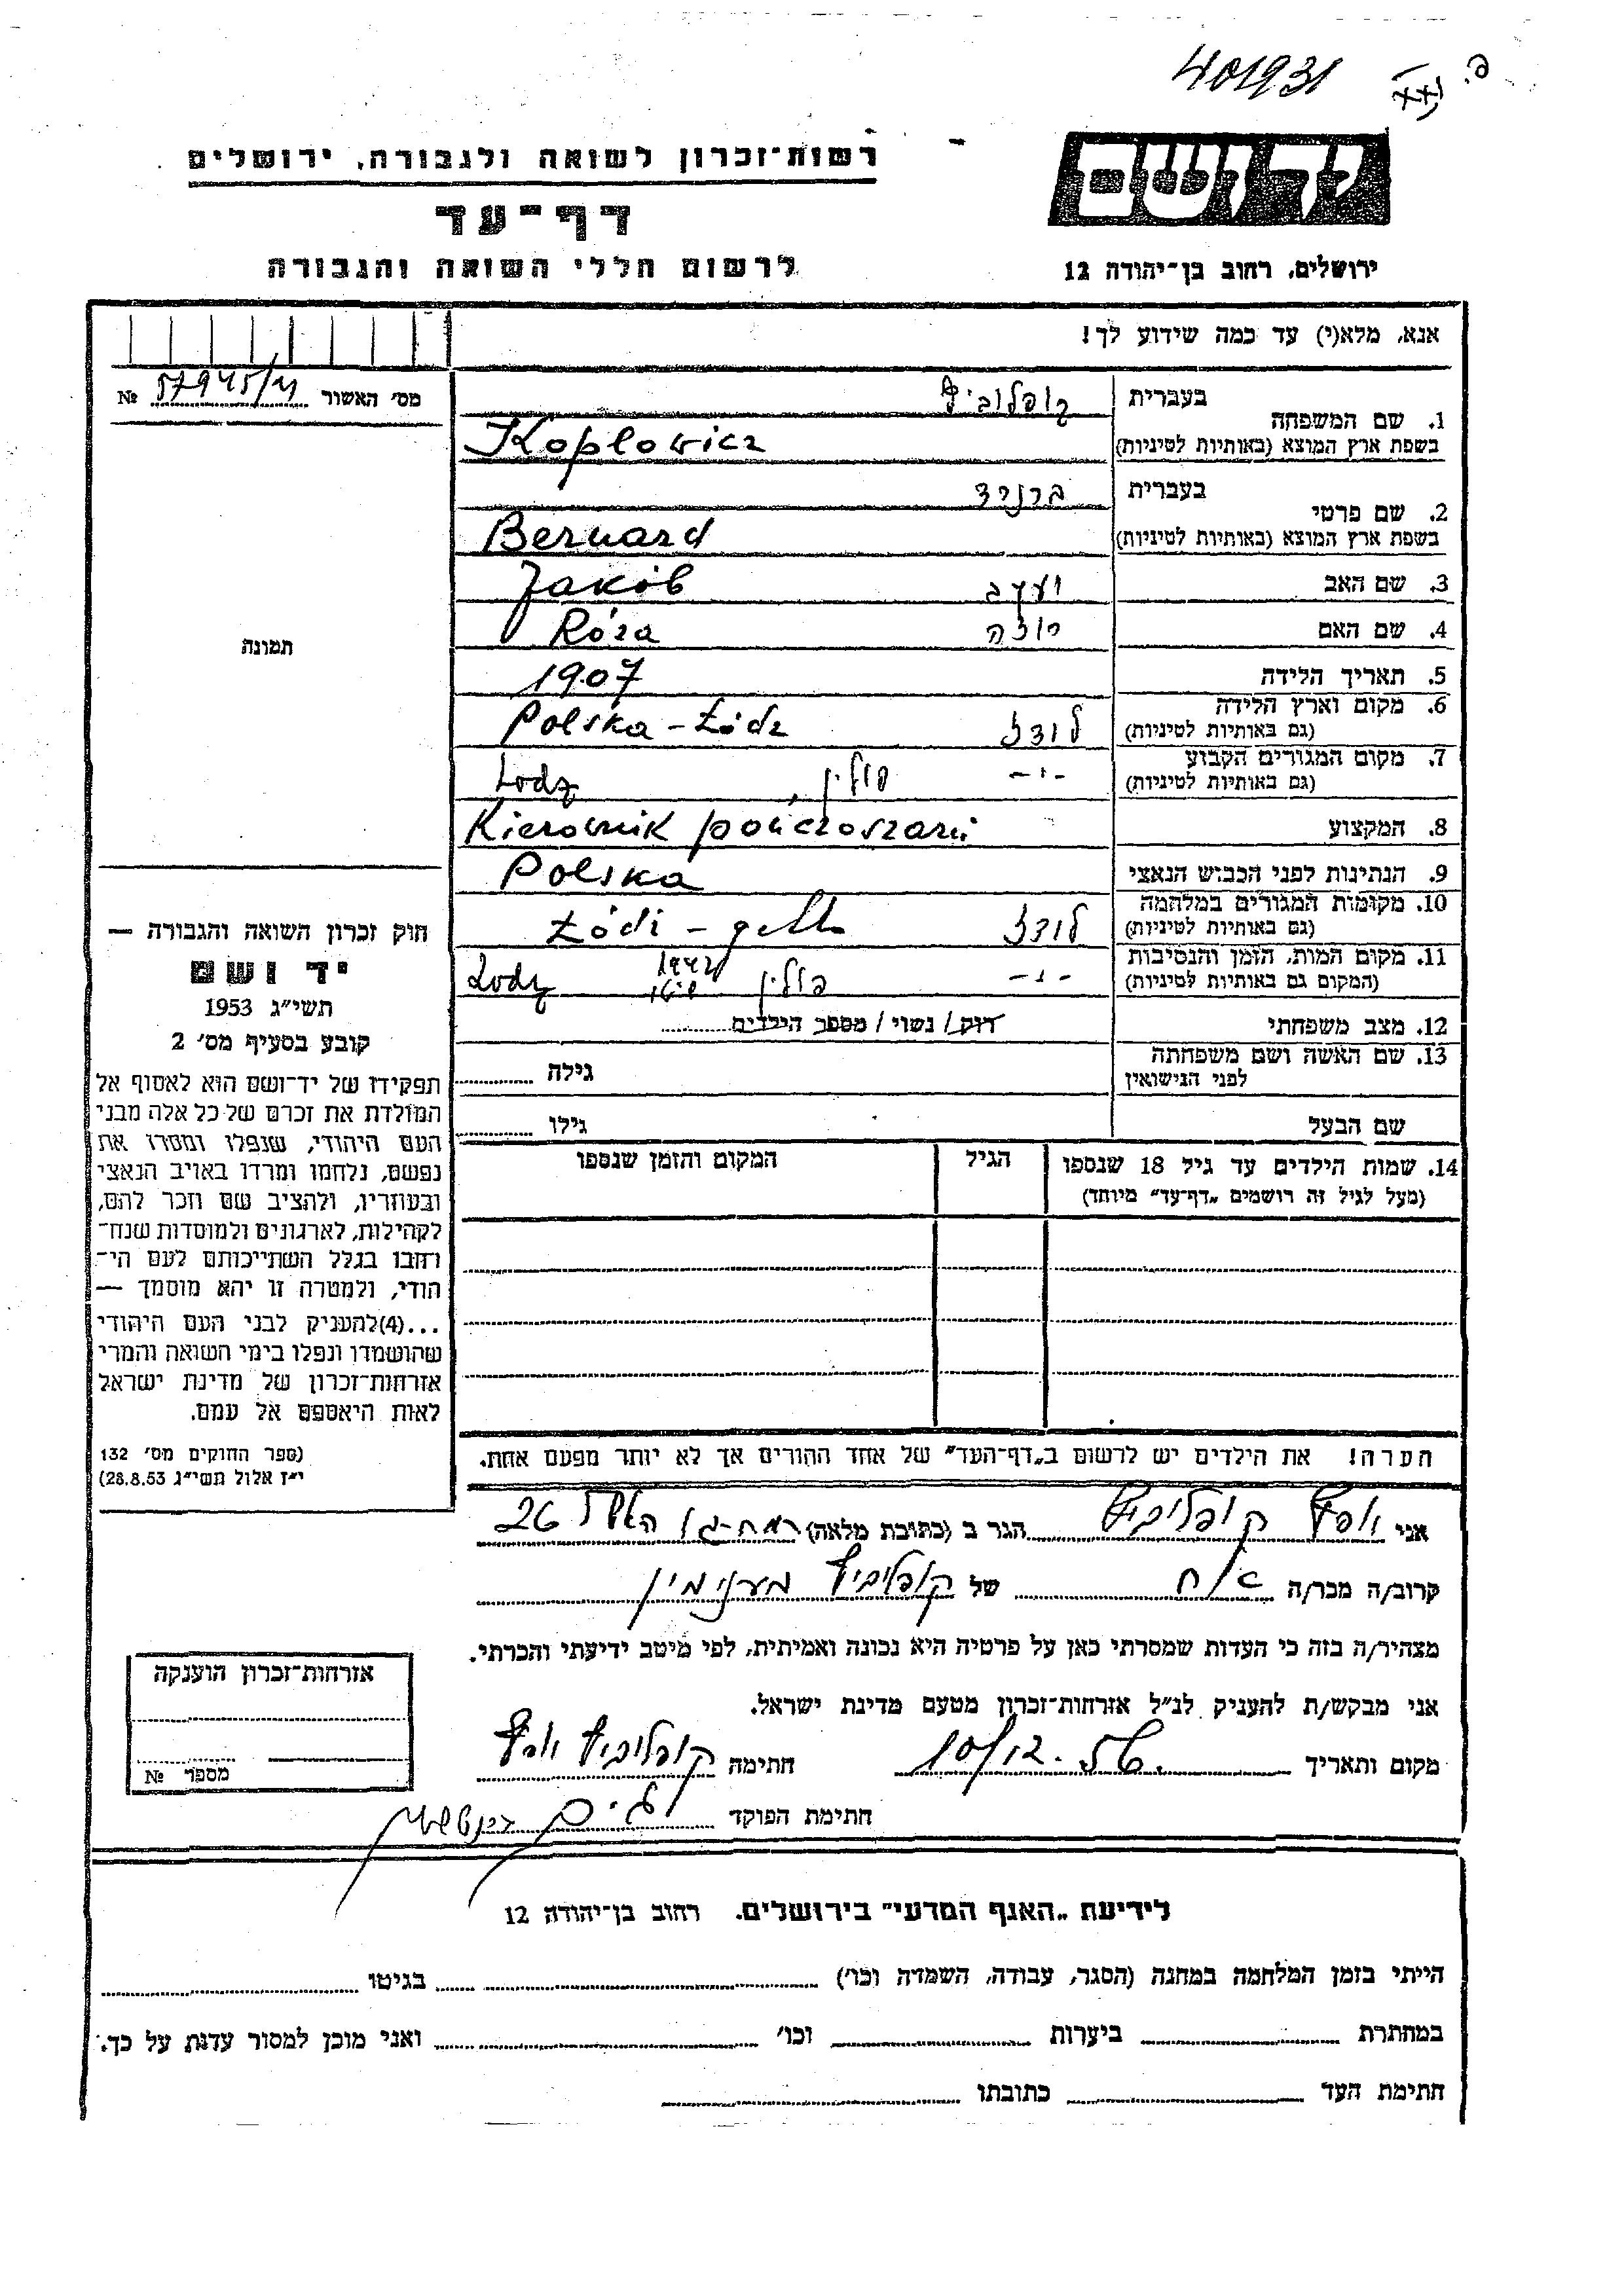 401931
פ.
יד ושם
רשות־זכרון לשואה ולגבורה, ירושלים
דף־עד
לרשום חללי השואה והגבורה
ירושלים, רחוב בן־יהודה 12
אנא, מלא(י) עד כמה שידוע לך!
מס׳ האשור № 57945/
1. שם המשפחה
בעברית קופלוביץ
בשפת ארץ המוצא (באותיות לטיניות) Koplowicz
2. שם פרטי
בעברית ברנרד
בשפת ארץ המוצא (באותיות לטיניות) Bernard
3. שם האב יעקב Jakób
4. שם האם רוזה Róza
5. תאריך הלידה 1907
6. מקום וארץ הלידה לודז Polska – Łódz
(גם באותיות לטיניות)
7. מקום המגורים הקבוע –״– פולין, Lodz
(גם באותיות לטיניות)
8. המקצוע Kierownik pończoszarni
9. הנתינות לפני הכבוש הנאצי Polska
10. מקומות המגורים במלחמה לודז Łódź – getto
(גם באותיות לטיניות)
11. מקום המות, הזמן והנסיבות –״– פולין 1942 Lodz
(המקום גם באותיות לטיניות)
12. מצב משפחתי רוק / נשוי / מספר הילדים
13. שם האשה ושם משפחתה גילה
לפני הנישואין
שם הבעל גילו
תמונה
חוק זכרון השואה והגבורה —
יד ושם
תשי״ג 1953
קובע בסעיף מס׳ 2
תפקידו של יד־ושם הוא לאסוף אל
המולדת את זכרם של כל אלה מבני
העם היהודי, שנפלו ומסרו את
נפשם, נלחמו ומרדו באויב הנאצי
ובעוזריו, ולהציב שם וזכר להם,
לקהילות, לארגונים ולמוסדות שנח־
רובו בגלל השתייכותם לעם הי־
הודי, ולמטרה זו יהא מוסמך —
...(4)להעניק לבני העם היהודי
שהושמדו ונפלו בימי השואה והמרי
אזרחות־זכרון של מדינת ישראל
לאות היאספם אל עמם.
(ספר החוקים מס׳ 132
י״ז אלול תשי״ג 28.8.53)
14. שמות הילדים עד גיל 18 שנספו הגיל המקום והזמן שנספו
(מעל לגיל זה רושמים „דף־עד״ מיוחד)
הערה! את הילדים יש לרשום ב„דף־העד״ של אחד ההורים אך לא יותר מפעם אחת.
אני קופלוביץ הגר ב (כתובת מלאה) רמת-גן 26
קרוב/ה מכר/ה אח של קופלוביץ
מצהיר/ה בזה כי העדות שמסרתי כאן על פרטיה היא נכונה ואמיתית, לפי מיטב ידיעתי והכרתי.
אני מבקש/ת להעניק לנ״ל אזרחות־זכרון מטעם מדינת ישראל.
מקום ותאריך 10/12. חתימה קופלוביץ
חתימת הפוקד
אזרחות־זכרון הוענקה
מספר №
לידיעת „האגף המדעי״ בירושלים, רחוב בן־יהודה 12
הייתי בזמן המלחמה במחנה (הסגר, עבודה, השמדה וכו׳) בגיטו
במחתרת ביערות וכו׳ ואני מוכן למסור עדות על כך.
חתימת העד כתובתו